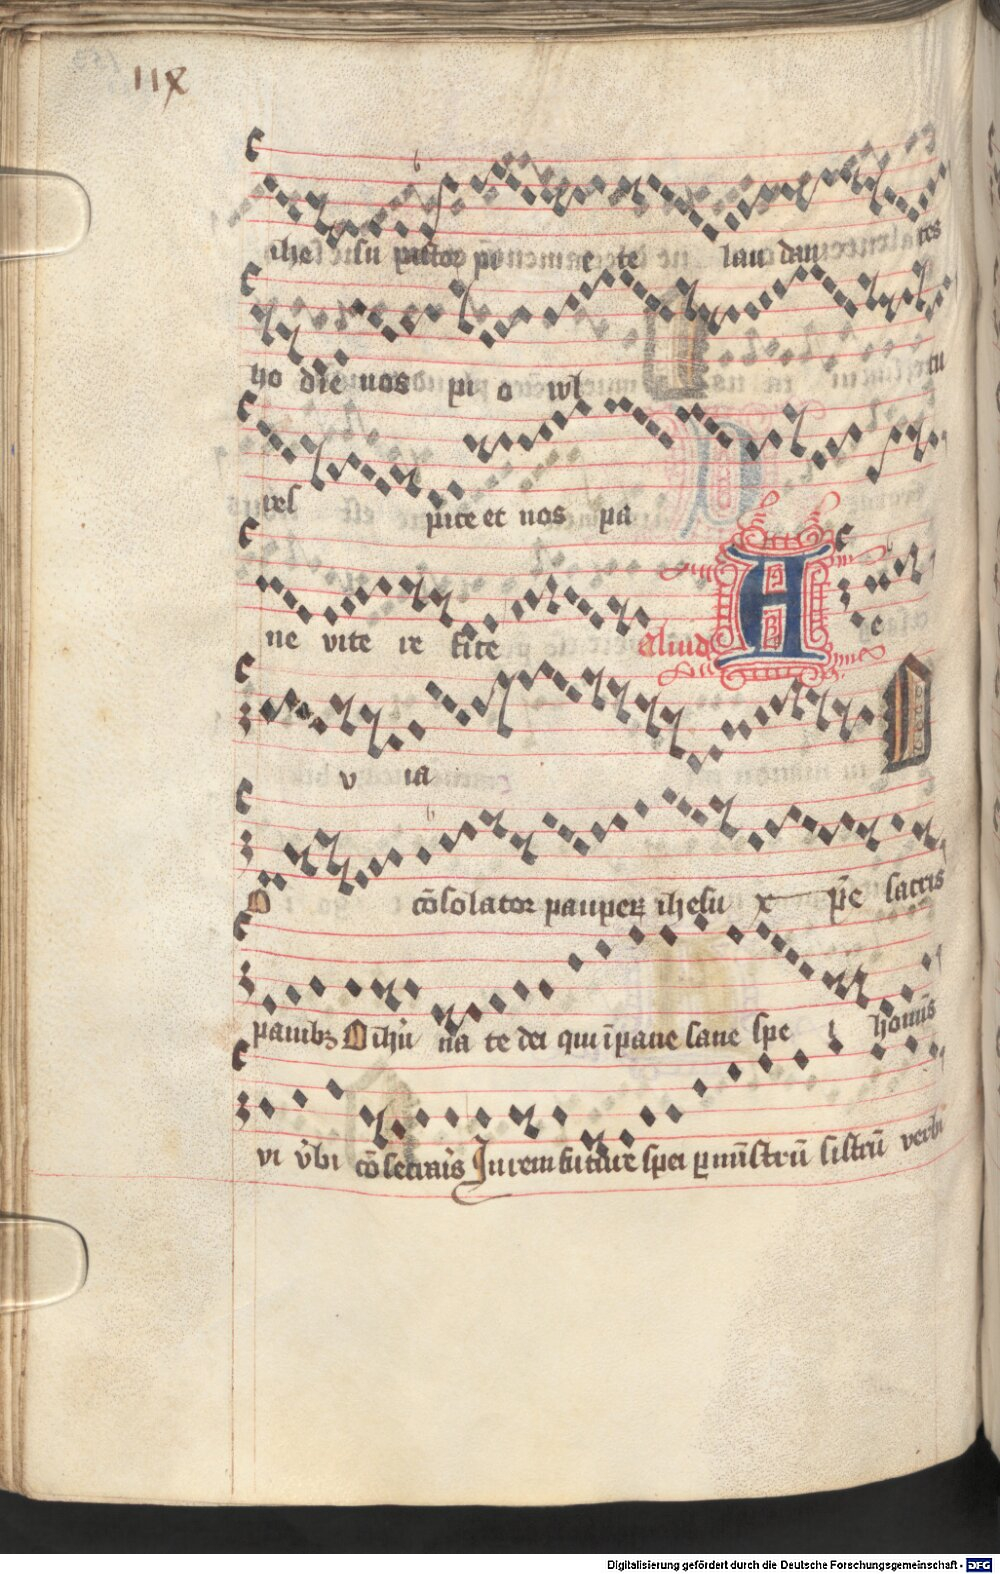 11x
ihe su pastor pi e te lau dan tes
ho die nos pi o wl tu
rel pice et nos pa
ne vite re fice Aliud A e
v ia
O cōsolator pauperꝫ ihesu xpē sacris
panibꝫ O ihū na te dei qui ī pane sane spe hoīs
vi v̄bi cōsecrāis In rem future spei ꝑ mīstrū sistrū verbi
Digitalisierung gefördert durch die Deutsche Forschungsgemeinschaft - DFG